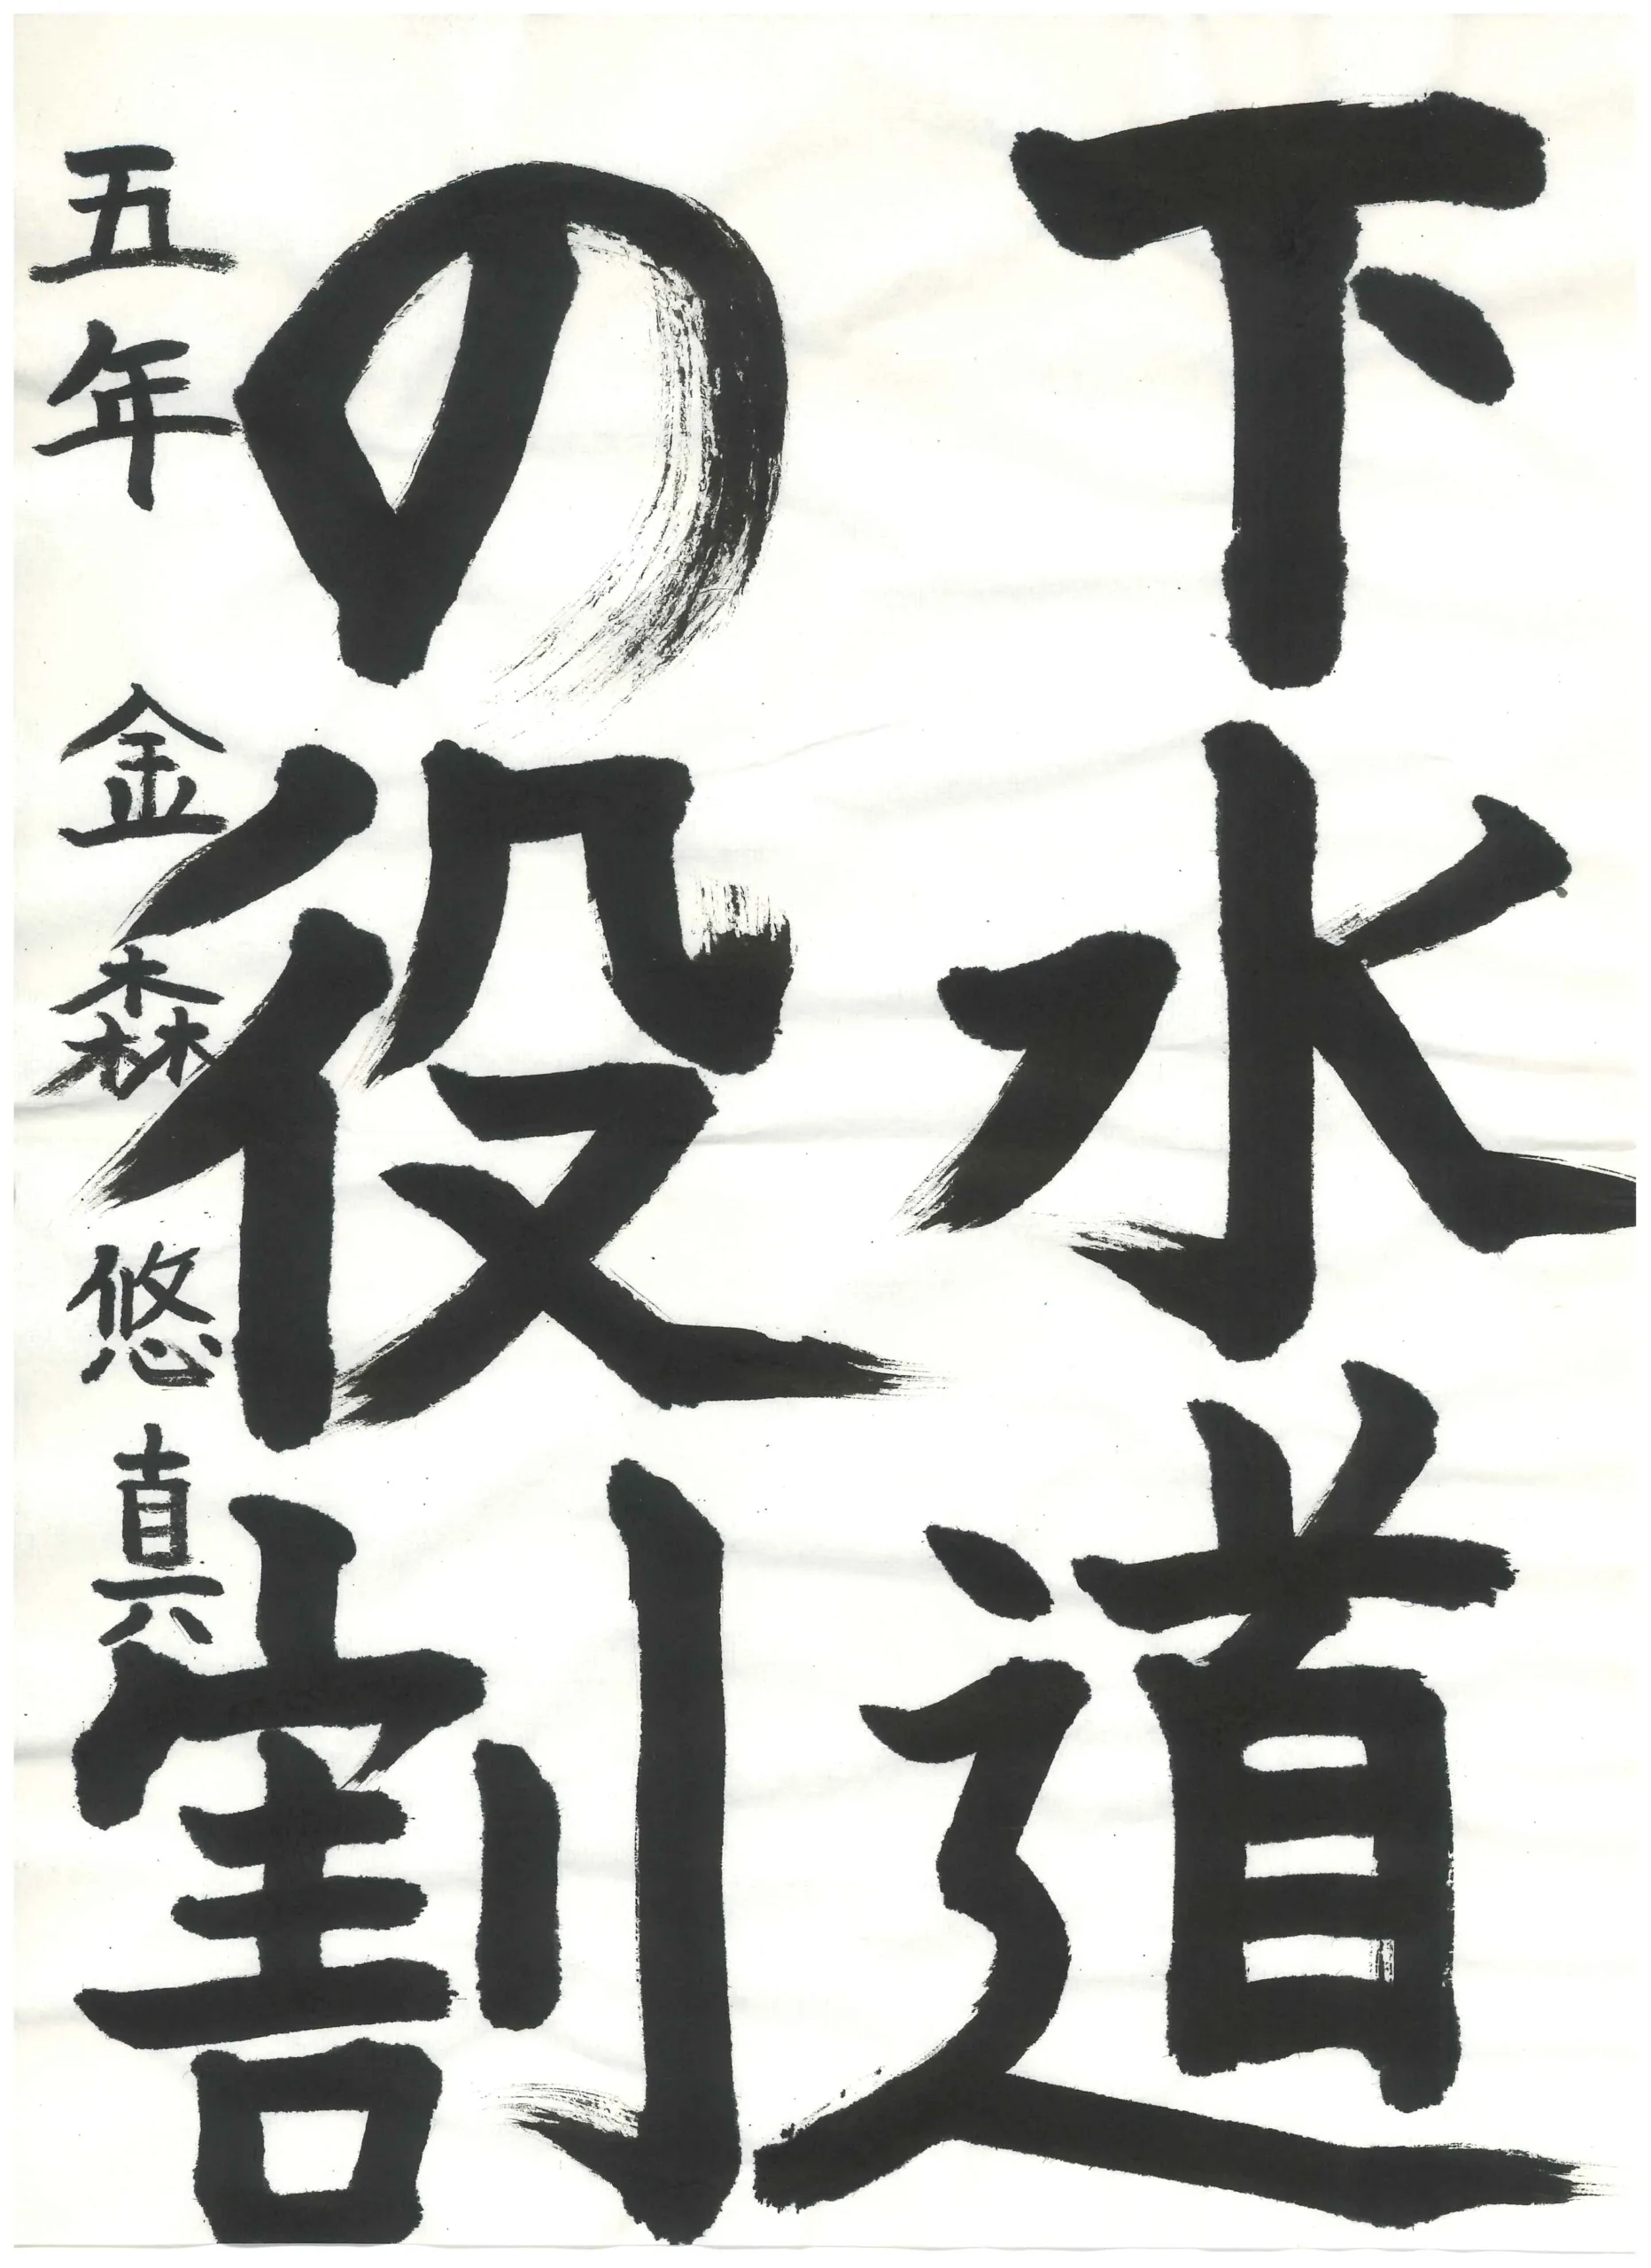 下水道
の役割
五年 金森 悠真